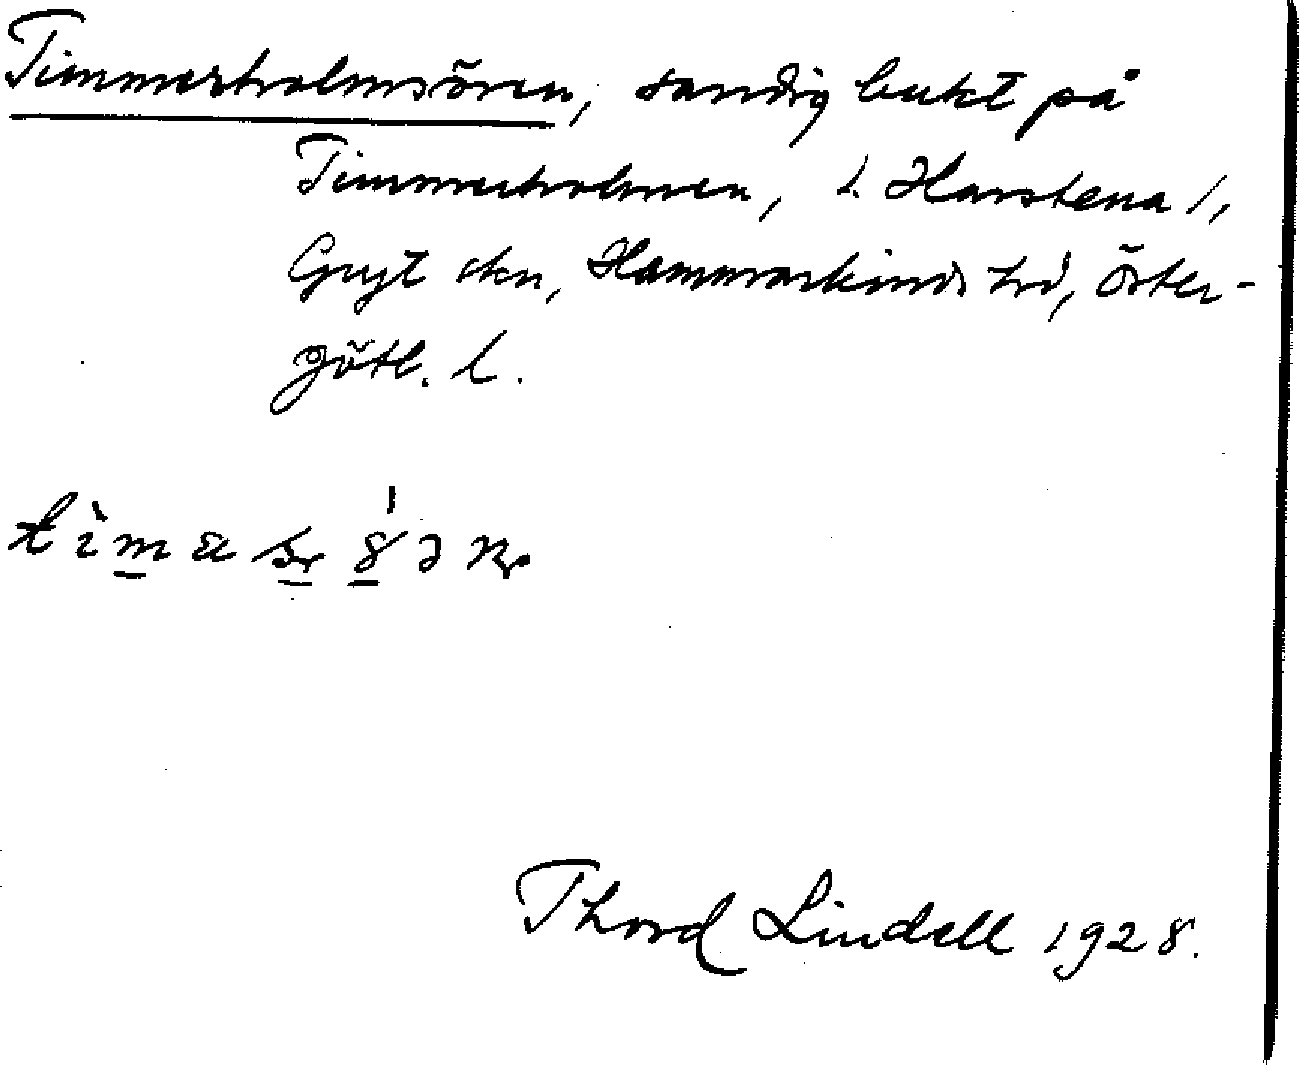 Timmerholmsören, sandig bukt på
Timmerholmen, /. Harstena /,
Gryt skn, Hammarkinds hd, Öster-
götl. l.
Thord Lindell 1928.